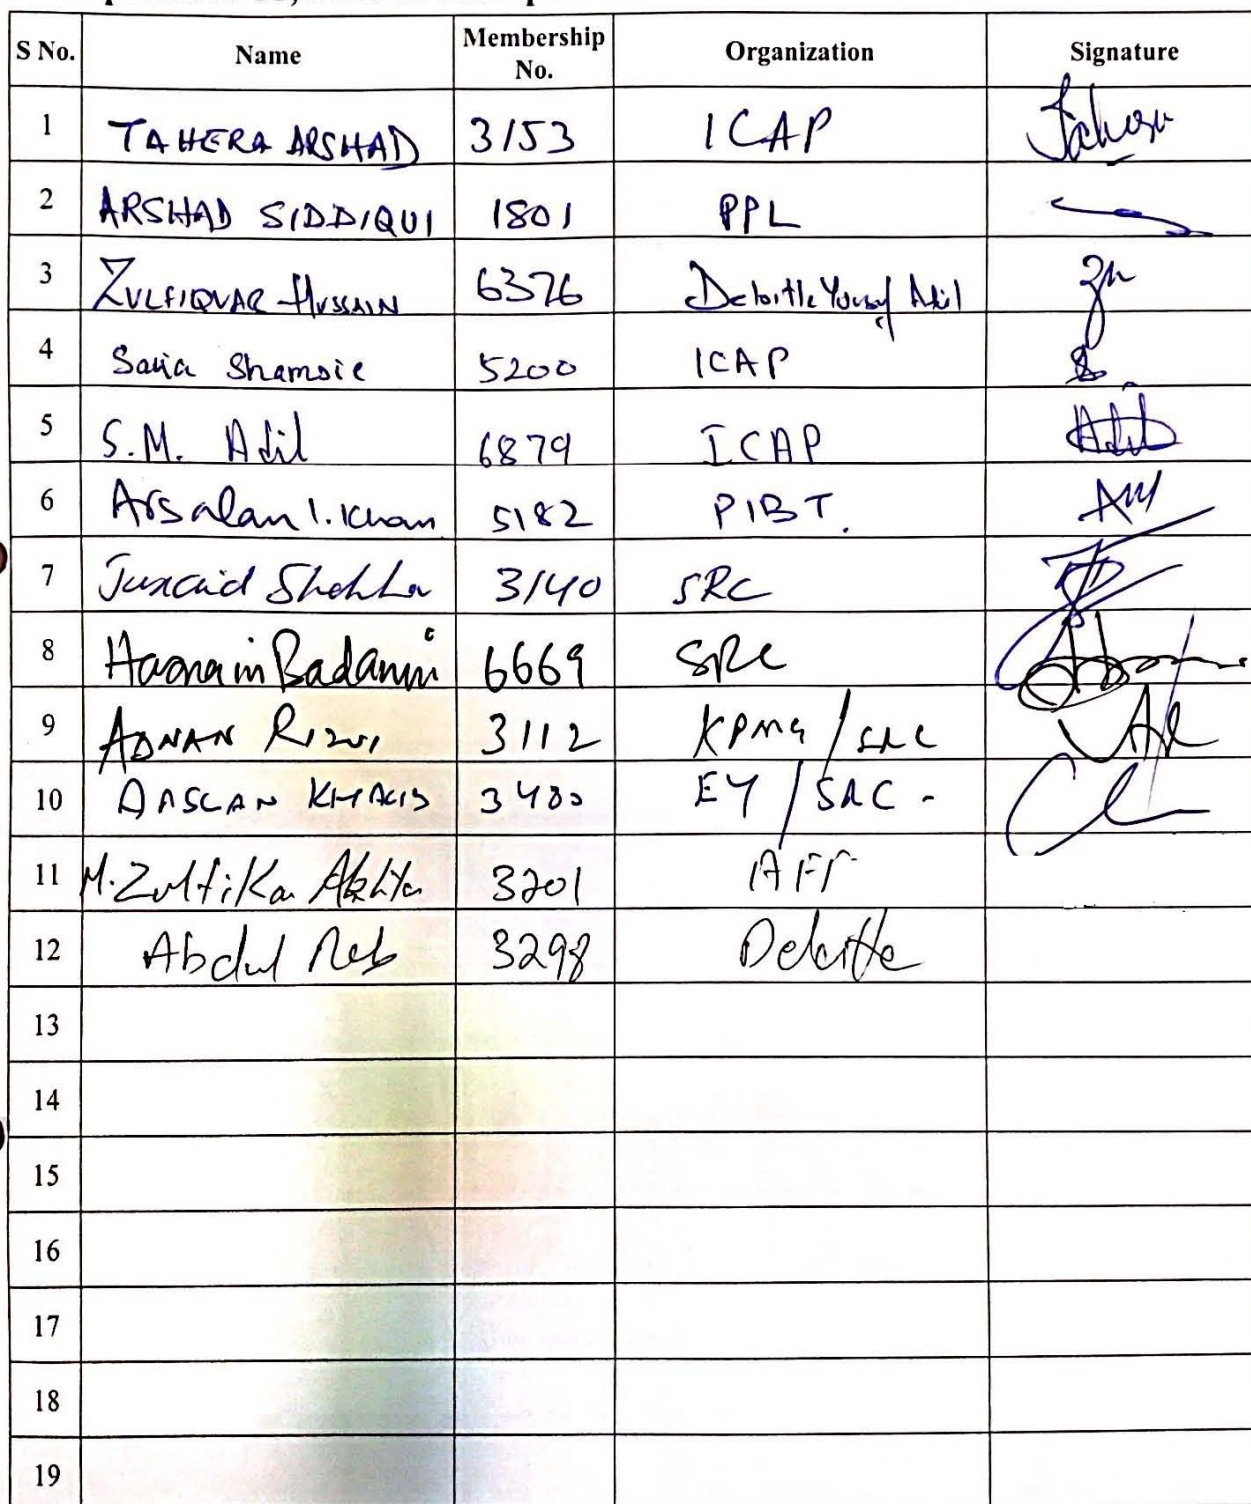 S No. Name Membership No. Organization Signature
1 TAHERA ARSHAD 3153 ICAP
2 ARSHAD SIDDIQUI 1801 PPL
3 ZULFIQUAR HUSSAIN 6376 Deloitte Yousuf Adil
4 Saria Shamsie 5200 ICAP
5 S.M. Adil 6879 ICAP Adil
6 Arsalan I. Khan 5182 PIBT.
7 Junaid 3140 SRC
8 Hasnain Badami 6669 SRC
9 ADNAN RIZVI 3112 KPMG / SRC
10 3480 EY / SRC -
11 M. Zulfikar Akhtar 3201 AFF
12 Abdul Rab 3298 Deloitte
13
14
15
16
17
18
19